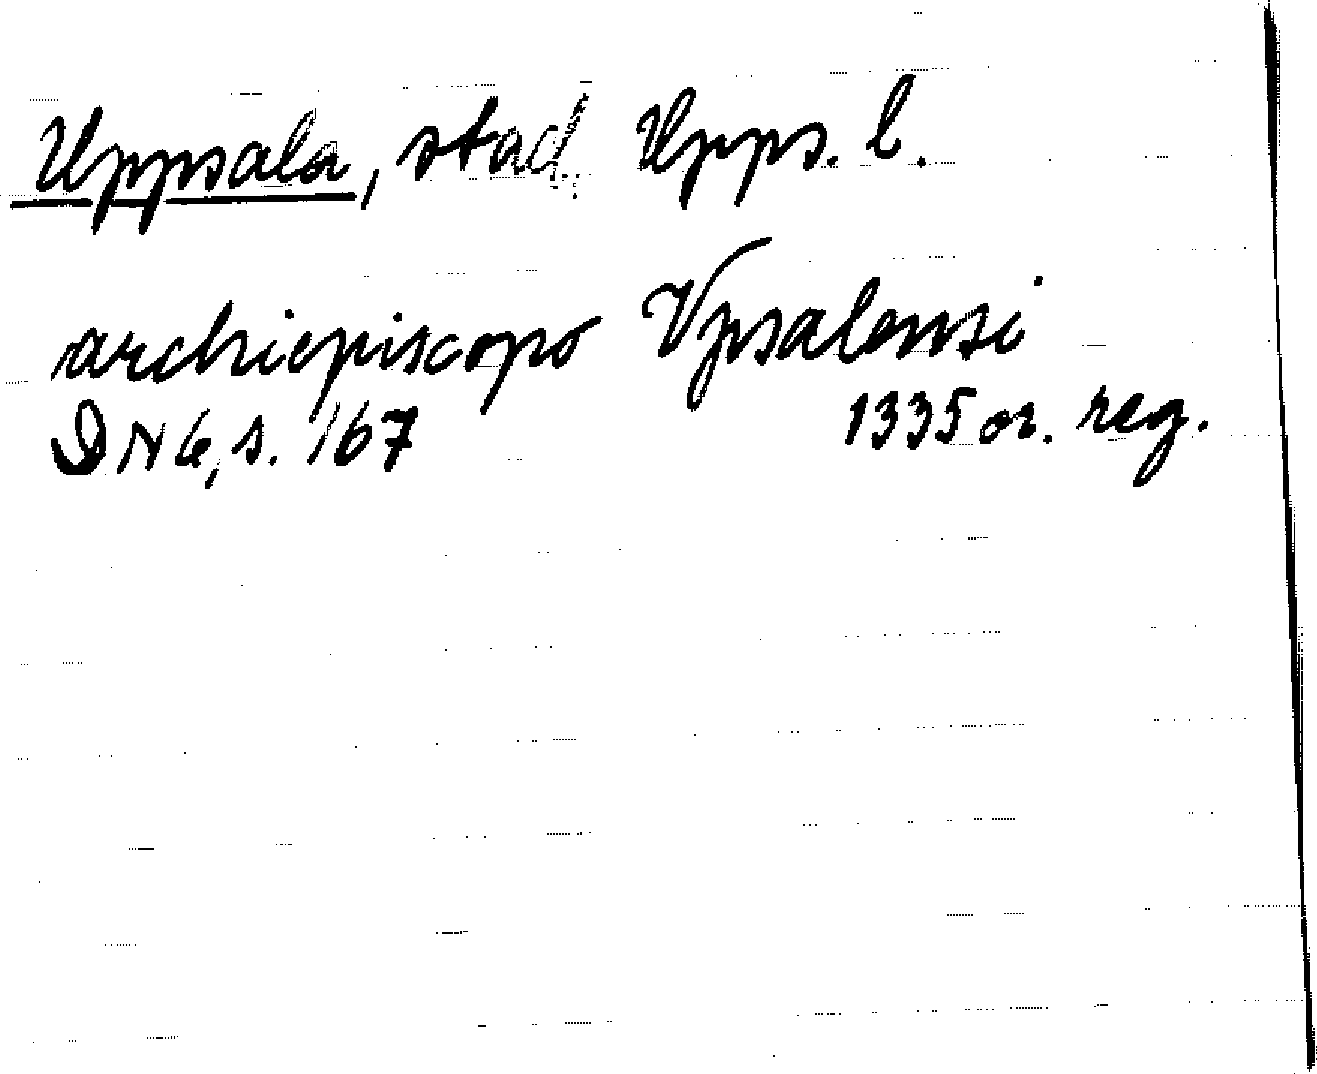 Uppsala, stad, Upps. l.
archiepiscopo Vpsalensi
DN 6, s. 167 1335 or. reg.